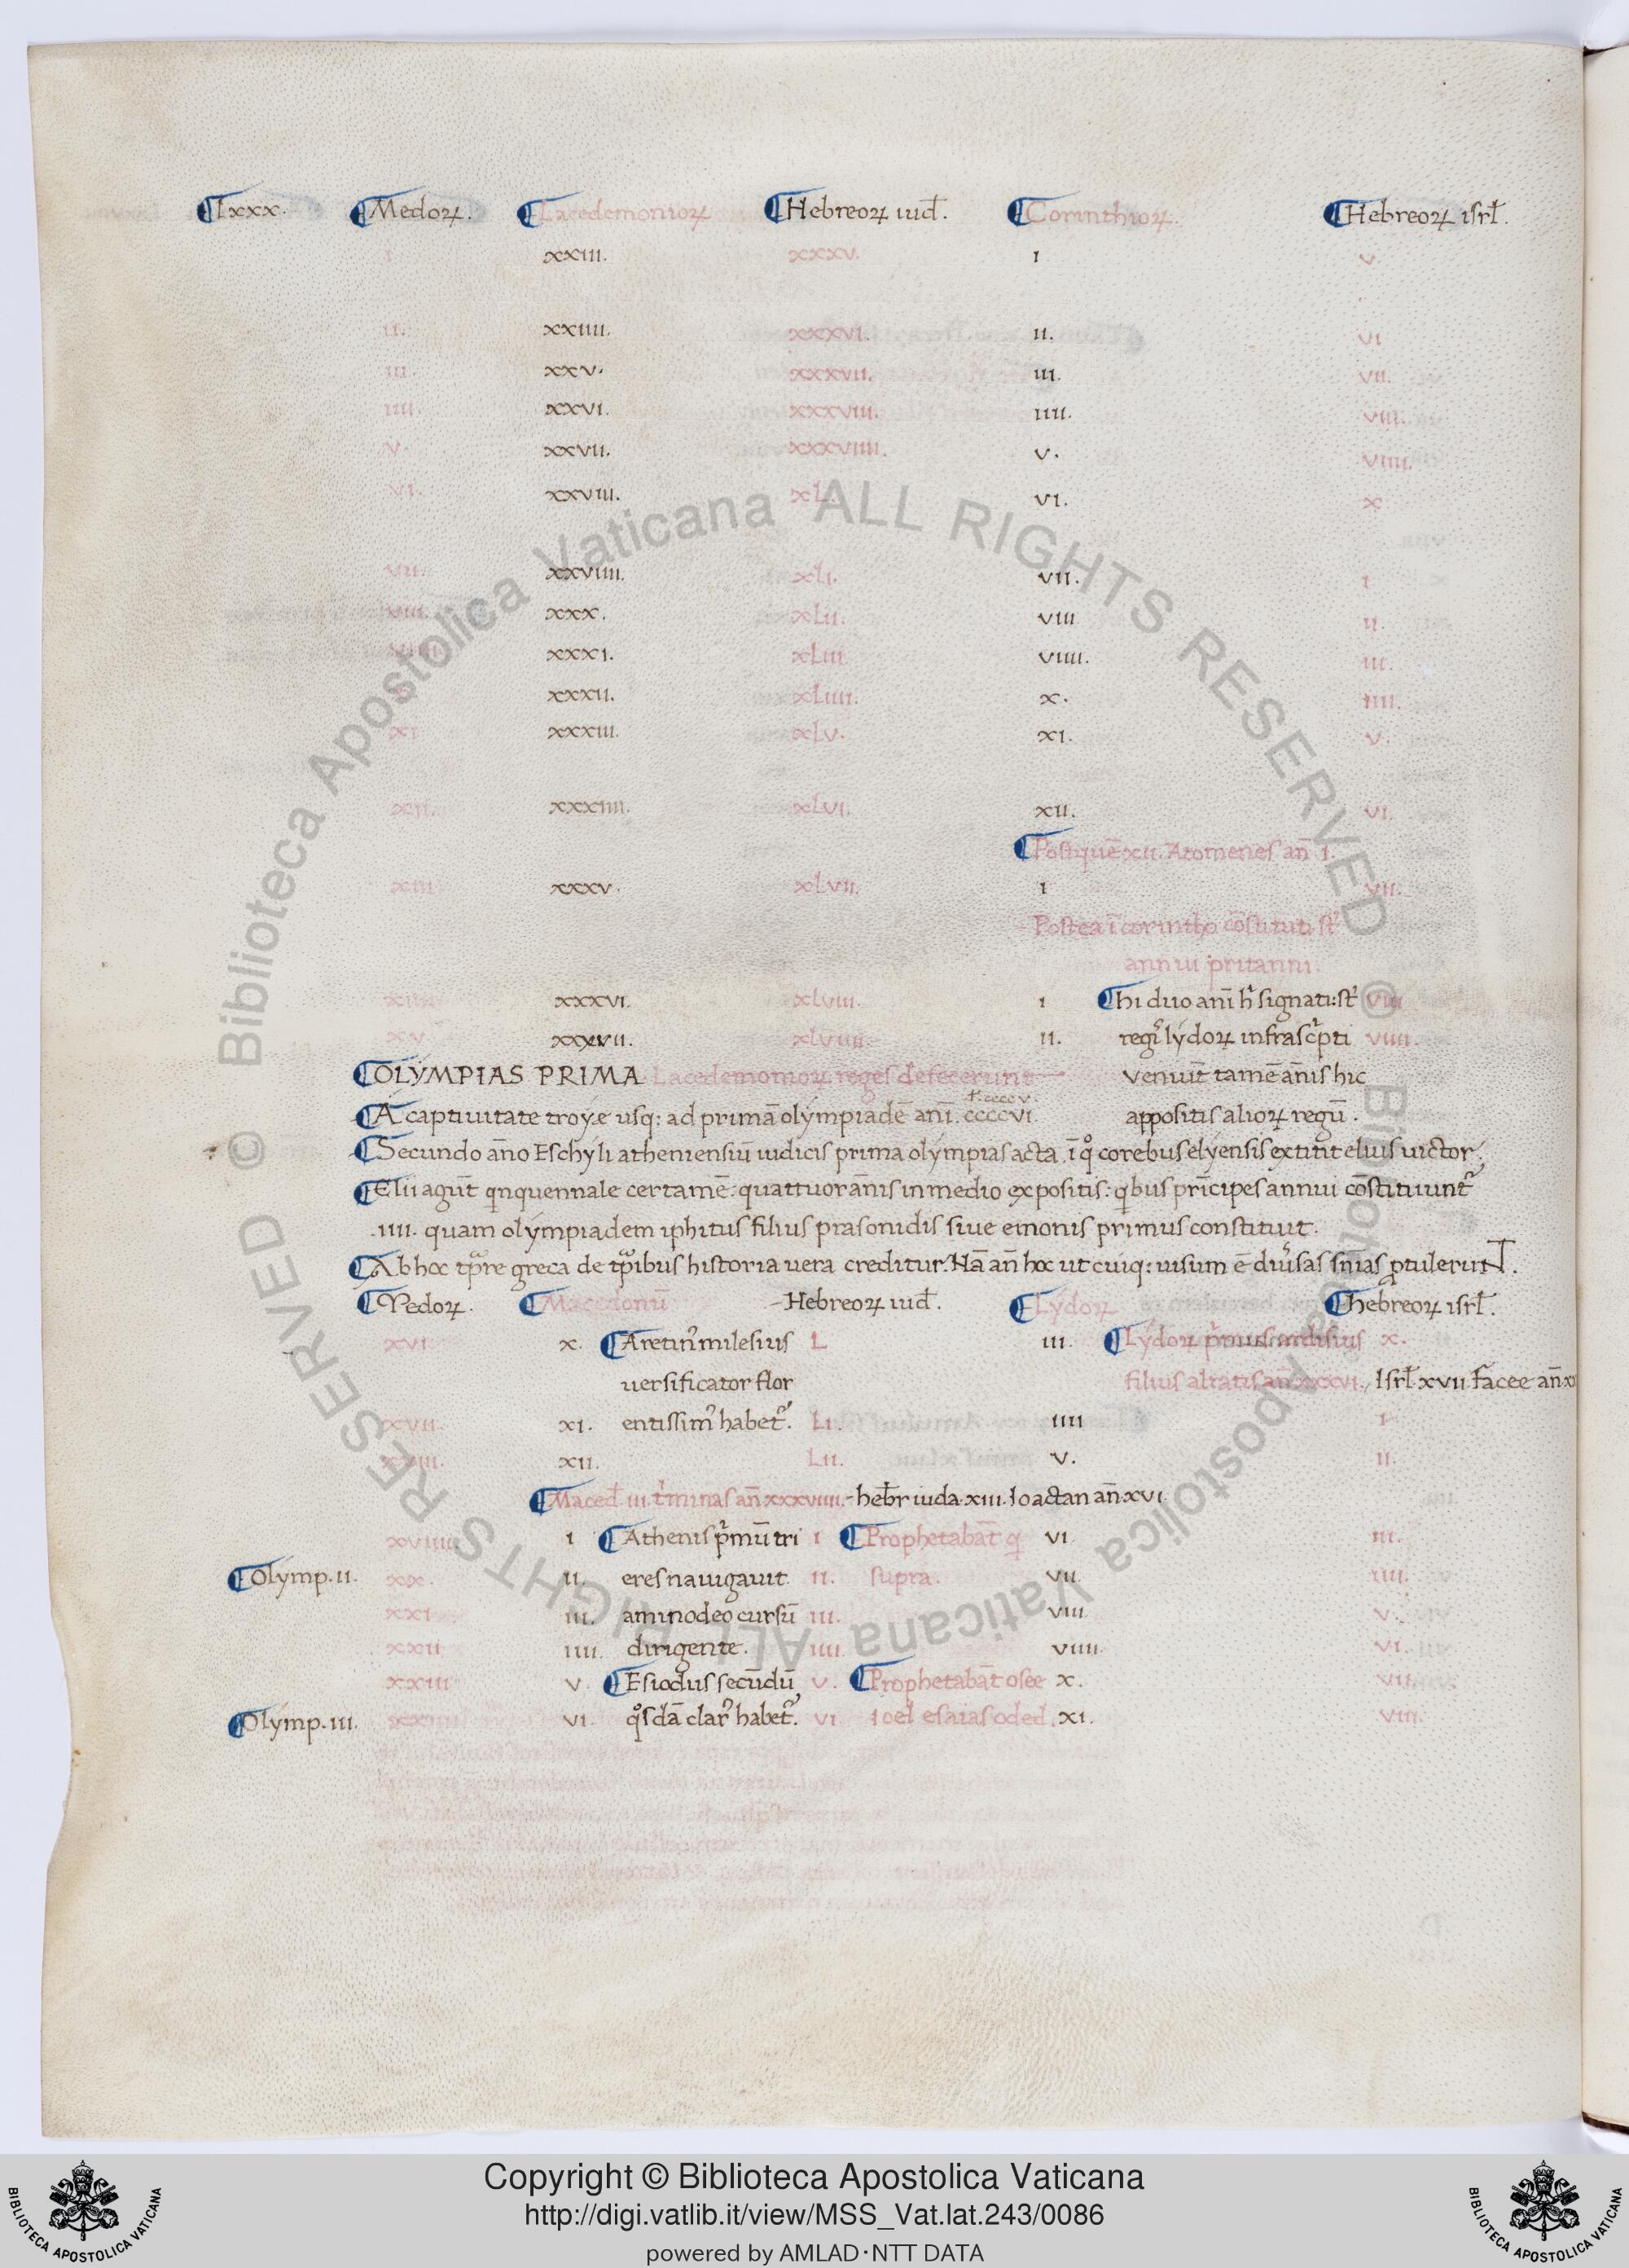 Lxxx. Medoꝝ. Lacedemonioꝝ Hebreoꝝ iud̄. Corinthioꝝ. Hebreoꝝ isrł.
I xxiii. xxxv. I v
II. xxiiii. xxxvi. II. vi
III. xxv. xxxvii. III. vii.
IIII. xxvi. xxxviii. IIII. viii.
v. xxvii. xxxviiii. v. viiii.
vi. xxviii. xL vi. x
vii. xxviiii. xLi. vii. I
viii. xxx. xLii. viii II.
xxxi. xLiii viiii. III.
xxxii. xLiiii. x. IIII.
xi xxxiii. xLv. xi. v.
xii. xxxiiii. xLvi. xii. vi.
Postquē xii. Atomenes an̄ I.
xiii xxxv. xLvii. I vii.
Postea ī corintho cōstituti st̄
annui pritanni.
xiiii xxxvi. xLviii. I hi duo anī h̓ signati: st̄ viii
xv xxxvii. xLviiii. II. regī lydoꝝ infrasc̓pti viiii.
OLYMPIAS PRIMA Lacedemonioꝝ reges defecerunt venuīt tamē an̄is hic
ł. ccccv.
A captiuitate troye usq: ad primā olympiadē anī. ccccvi. appositis alioꝝ regū.
Secundo an̄o Eschyli atheniensiū iudicis prima olympias acta. ī q̊ corebus elyensis extitit eluis uictor.
Elii agūt qnquennale certamē: quattuor an̄is in medio expositis: qbus prīcipes annui cōstituunt̄
.IIII. quam olympiadem iphitus filius prasonidis siue emonis primus constituit.
Ab hoc tp̄re greca de tp̄ibus historia uera creditur. Nā an̄ hoc ut cuiq: uisum ē diu̓sas sn̄ias ꝓtulerunT.
Medoꝝ. Macedonū Hebreoꝝ iud̄. Lydoꝝ hebreoꝝ isrł.
xvi x. Aretin᾽ milesius L III. Lydoꝝ p̓mus ardisius x.
uersificator flor filius aliatis an̄ xxxvi. Isrł xvii facee an̄ x
xvii. xi. entissim᾽ habet̄. Li. IIII I
xviii. xii. Lii. v. II.
Maced̄ III. t̓minas an̄ xxxviiii. heb̄r iuda. xiii. Ioactan an̄. xvi
xviiii I Athenis p̓mū tri I Prophetabāt q̄ vi III.
Olymp. II. xx. II. eres nauigauit II. supra. vii. IIII.
xxi III. aminodeo cursū III. viii v.
xxii IIII. dirigente. IIII. viiii. vi.
xxiii v. Esiodus secūdū v. Prophetabāt osee x. vii.
Olymp. III. vi. q̊sdā clar᾽ habet̄. vi Ioel esaias oded. xi. viii.
Copyright © Biblioteca Apostolica Vaticana
http://digi.vatlib.it/view/MSS_Vat.lat.243/0086
powered by AMLAD·NTT DATA
BIBLIOTECA APOSTOLICA VATICANA
BIBLIOTECA APOSTOLICA VATICANA
© Biblioteca Apostolica Vaticana ALL RIGHTS RESERVED © Biblioteca Apostolica Vaticana ALL RIGHTS RESERVED